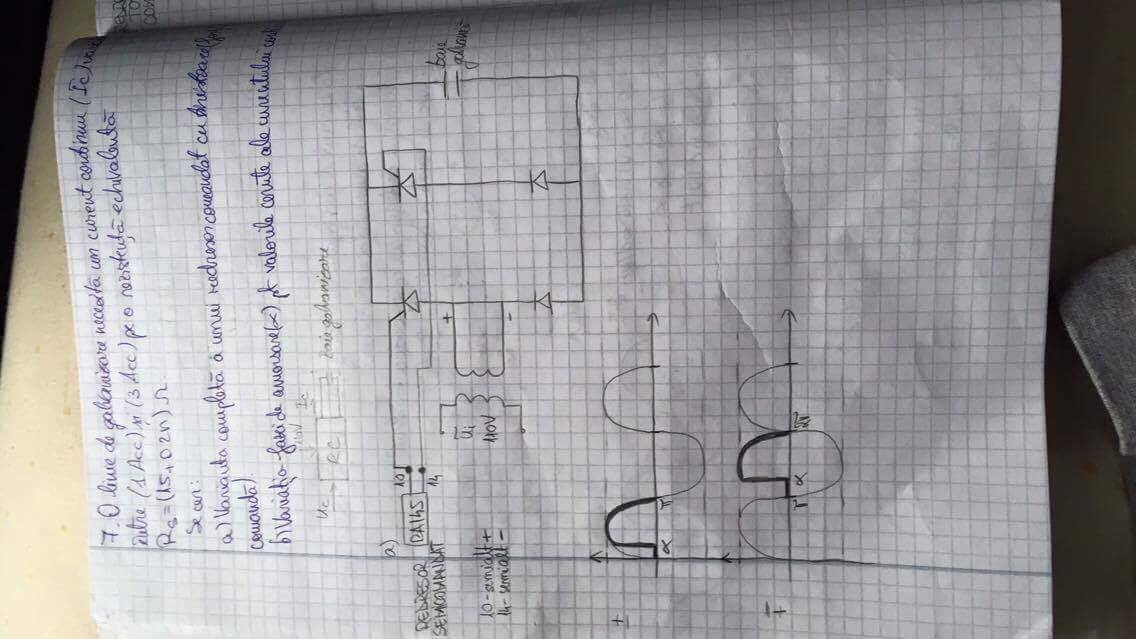 7. O linie de galvanizare necesită un curent continuu (Ic)
între (1 Acc) și (3 Acc) pe o rezistență echivalentă
Rs=(15+0.2n) Ω
Se cer:
a) Varianta completă a unui redresor comandat cu
comandă)
b) Variația fazei de amorsare(α) pt valorile cerute ale curentului
110V Ic
Uc RC baie galvanizare
a)
REDRESOR
SEMICOMANDAT
βA145
10
14
10-semialt +
14-semialt -
Ui
110V
+
-
baie
galvanică
+
α π
-
+
π α 2π